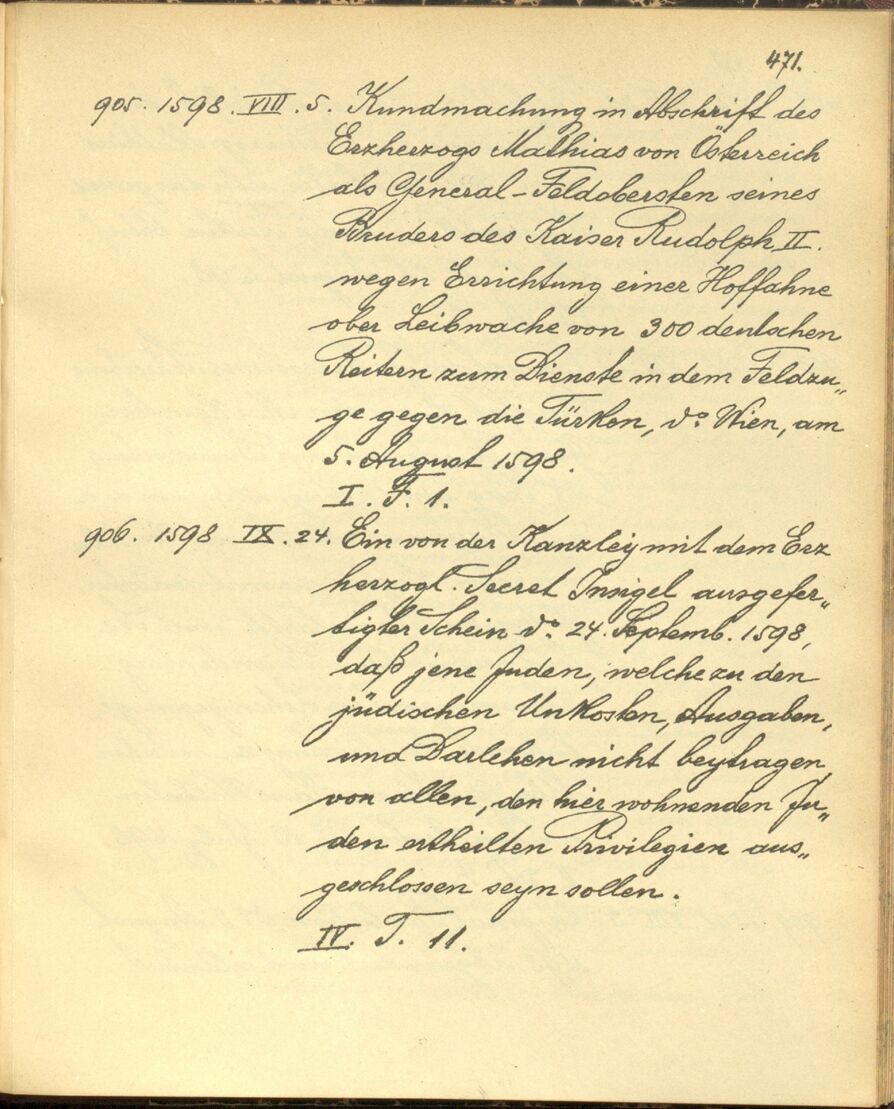 471.
905. 1598. VIII. 5. Kundmachung in Abschrift des
Erzherzogs Mathias von Österreich
als General-Feldobersten seines
Bruders des Kaiser Rudolph II.
wegen Errichtung einer Hoffahne
ober Leibwache von 300 deutschen
Reitern zum Dienste in dem Feldzu„
ge gegen die Türken, do. Wien, am
5. August 1598.
I. F. 1.
906. 1598 IX. 24. Ein von der Kanzley mit dem Erz
herzogl. Secret Insigel ausgefer„
tigter Schein do. 24. Septemb. 1598,
daß jene Juden, welche zu den
jüdischen Unkosten, Ausgaben,
und Darlehen nicht beytragen,
von allen, den hier wohnenden Ju„
den ertheilten Privilegien aus„
geschlossen seyn sollen.
IV. T. 11.